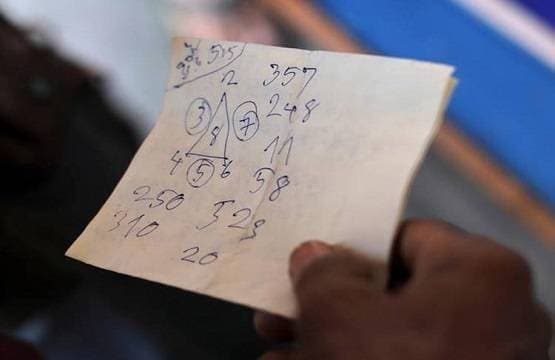 515
2 357
3 8 7 248
4 5 6 11
58
250 523
310
20